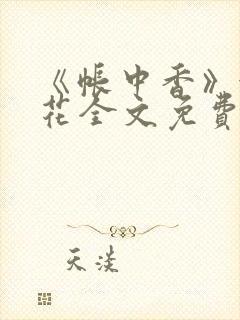 《帐中香》
花全文免费
天淡